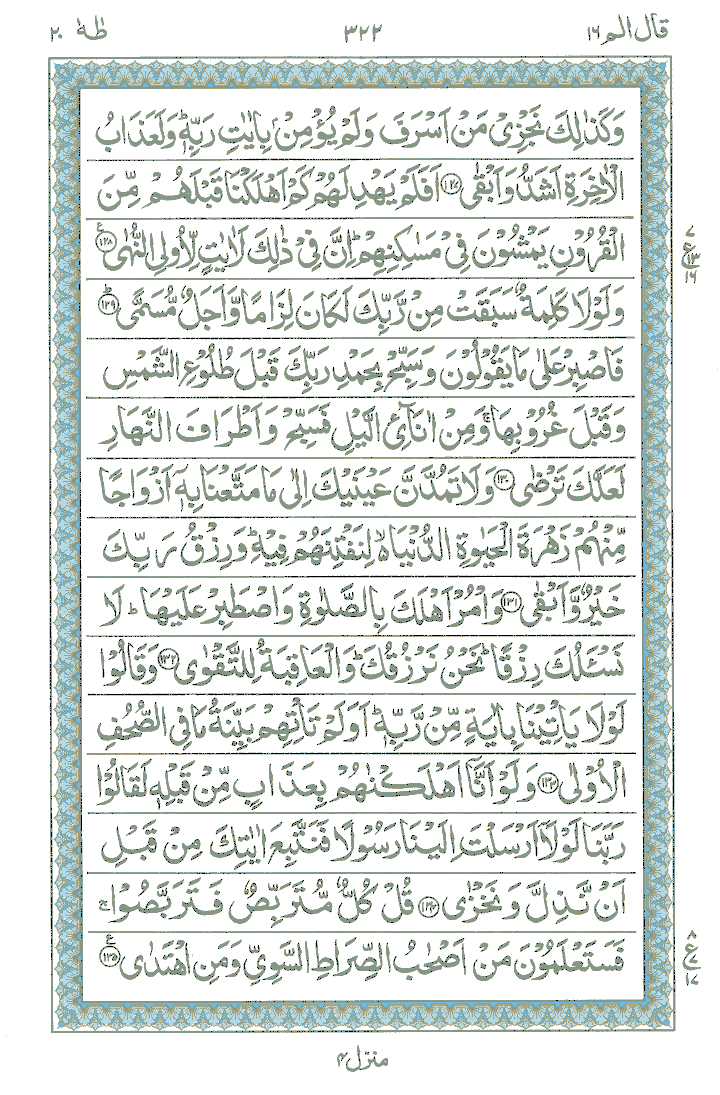 قال الم ١٦ ٣٢٢ طٰهٰ ٢٠
وَكَذٰلِكَ نَجْزِىْ مَنْ اَسْرَفَ وَلَمْ يُؤْمِنْۢ بِاٰيٰتِ رَبِّهٖ ؕ وَلَعَذَابُ
الْاٰخِرَةِ اَشَدُّ وَاَبْقٰى ﴿۱۲۷﴾ اَفَلَمْ يَهْدِ لَهُمْ كَمْ اَهْلَكْنَا قَبْلَهُمْ مِّنَ
الْقُرُوْنِ يَمْشُوْنَ فِىْ مَسٰكِنِهِمْ ؕ اِنَّ فِىْ ذٰلِكَ لَاٰيٰتٍ لِّاُولِى النُّهٰى ﴿۱۲۸﴾ ع
٧
ع ١٣
١٦
وَلَوْلَا كَلِمَةٌ سَبَقَتْ مِنْ رَّبِّكَ لَكَانَ لِزَامًا وَّاَجَلٌ مُّسَمًّى ؕ ﴿۱۲۹﴾
فَاصْبِرْ عَلٰى مَا يَقُوْلُوْنَ وَسَبِّحْ بِحَمْدِ رَبِّكَ قَبْلَ طُلُوْعِ الشَّمْسِ
وَقَبْلَ غُرُوْبِهَا ۚ وَمِنْ اٰنَآئِ الَّيْلِ فَسَبِّحْ وَاَطْرَافَ النَّهَارِ
لَعَلَّكَ تَرْضٰى ﴿۱۳۰﴾ وَلَا تَمُدَّنَّ عَيْنَيْكَ اِلٰى مَا مَتَّعْنَا بِهٖۤ اَزْوَاجًا
مِّنْهُمْ زَهْرَةَ الْحَيٰوةِ الدُّنْيَا ۙ۬ لِنَفْتِنَهُمْ فِيْهِ ؕ وَرِزْقُ رَبِّكَ
خَيْرٌ وَّاَبْقٰى ﴿۱۳۱﴾ وَاْمُرْ اَهْلَكَ بِالصَّلٰوةِ وَاصْطَبِرْ عَلَيْهَا ؕ لَا
نَسْـَٔلُكَ رِزْقًا ؕ نَحْنُ نَرْزُقُكَ ؕ وَالْعَاقِبَةُ لِلتَّقْوٰى ﴿۱۳۲﴾ وَقَالُوْا
لَوْلَا يَاْتِيْنَا بِاٰيَةٍ مِّنْ رَّبِّهٖ ؕ اَوَلَمْ تَاْتِهِمْ بَيِّنَةُ مَا فِى الصُّحُفِ
الْاُوْلٰى ﴿۱۳۳﴾ وَلَوْ اَنَّاۤ اَهْلَكْنٰهُمْ بِعَذَابٍ مِّنْ قَبْلِهٖ لَقَالُوْا
رَبَّنَا لَوْلَاۤ اَرْسَلْتَ اِلَيْنَا رَسُوْلًا فَنَتَّبِعَ اٰيٰتِكَ مِنْ قَبْلِ
اَنْ نَّذِلَّ وَنَخْزٰى ﴿۱۳۴﴾ قُلْ كُلٌّ مُّتَرَبِّصٌ فَتَرَبَّصُوْا ۚ
فَسَتَعْلَمُوْنَ مَنْ اَصْحٰبُ الصِّرَاطِ السَّوِىِّ وَمَنِ اهْتَدٰى ﴿۱۳۵﴾ ع
٨
ع ٧
١٧
منزل ۴